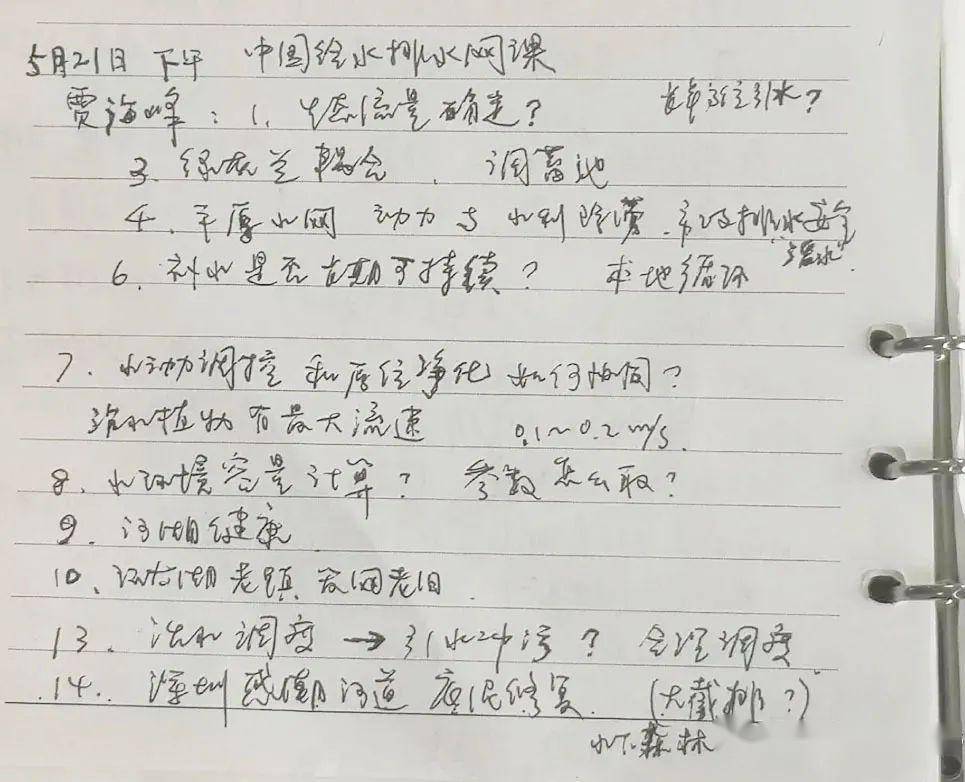 5月21日 下午 中国给水排水网课
贾海峰：1. 生态流量确定？ 引水？
3. 绿灰蓝耦合 . 调蓄池
4. 平原水网 动力与水利 . 市政排水安全
6. 补水是否长期可持续？ 本地循环
7. 水动力调控和原位净化如何协同？
沉水植物有最大流速 0.1~0.2 m/s.
8. 水环境容量计算？ 参数怎么取？
9. 河湖健康
10、环太湖老镇 管网老旧 .
13. 活水调度 → 引水冲污？ 合理调度
14. 深圳感潮河道底泥修复. (大截排？)
水下森林